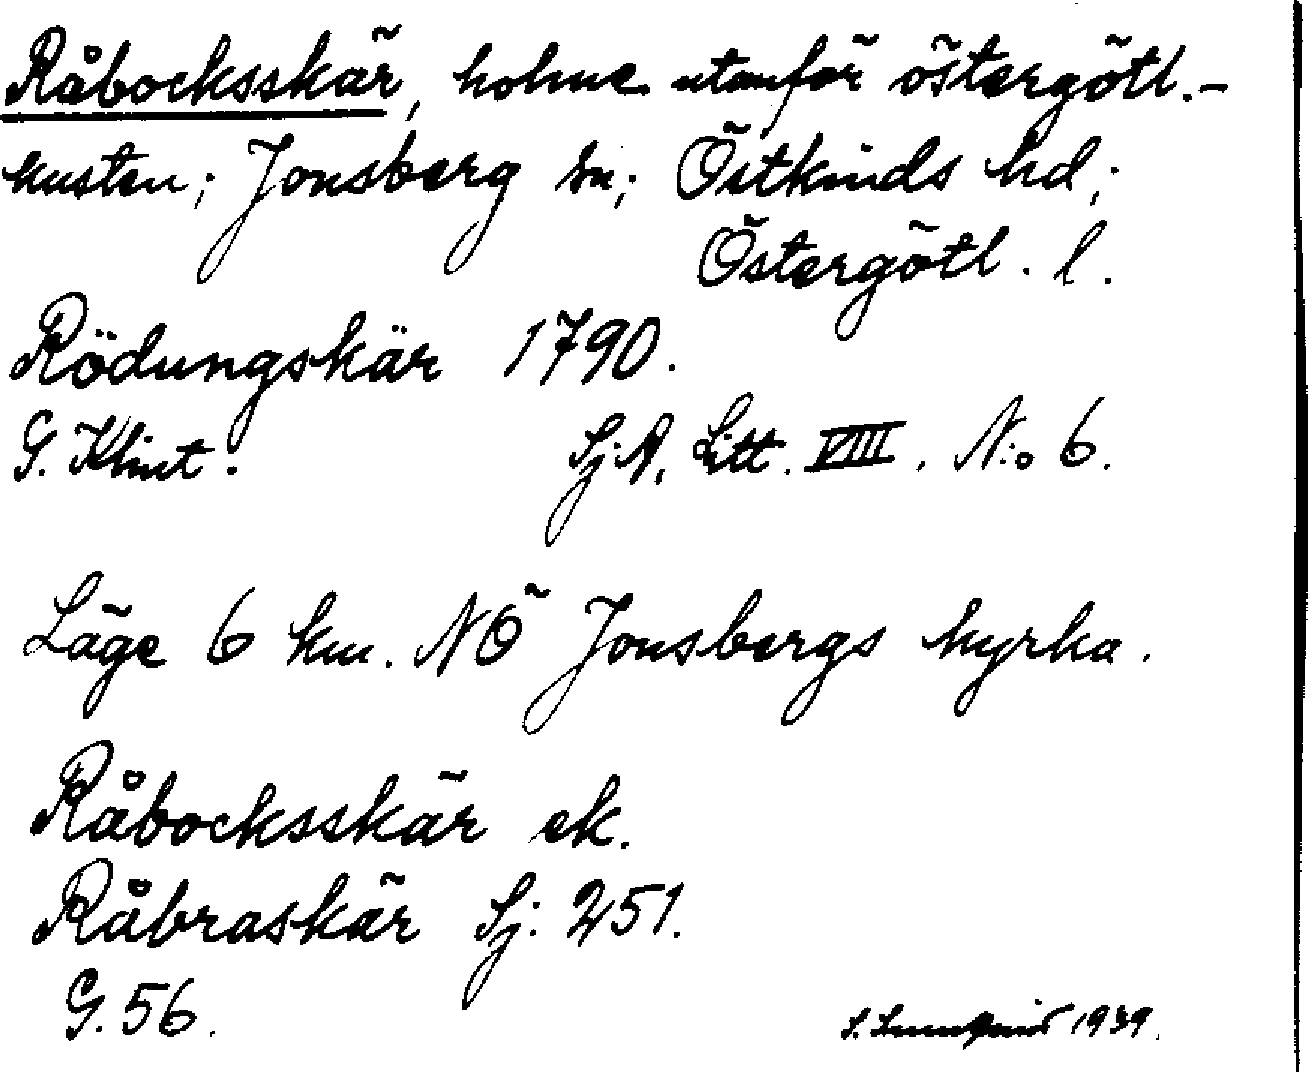 Råbocksskär, holme utanför östergötl.-
kusten; Jonsberg sn; Östkinds hd;
Östergötl. l.
Rödungskär 1790.
G. Klint. Sj.A. Litt. VIII. N:o 6.
Läge 6 km. NÖ Jonsbergs kyrka.
Råbocksskär ek.
Råbraskär Sj: 251.
G. 56.
S. 1939.